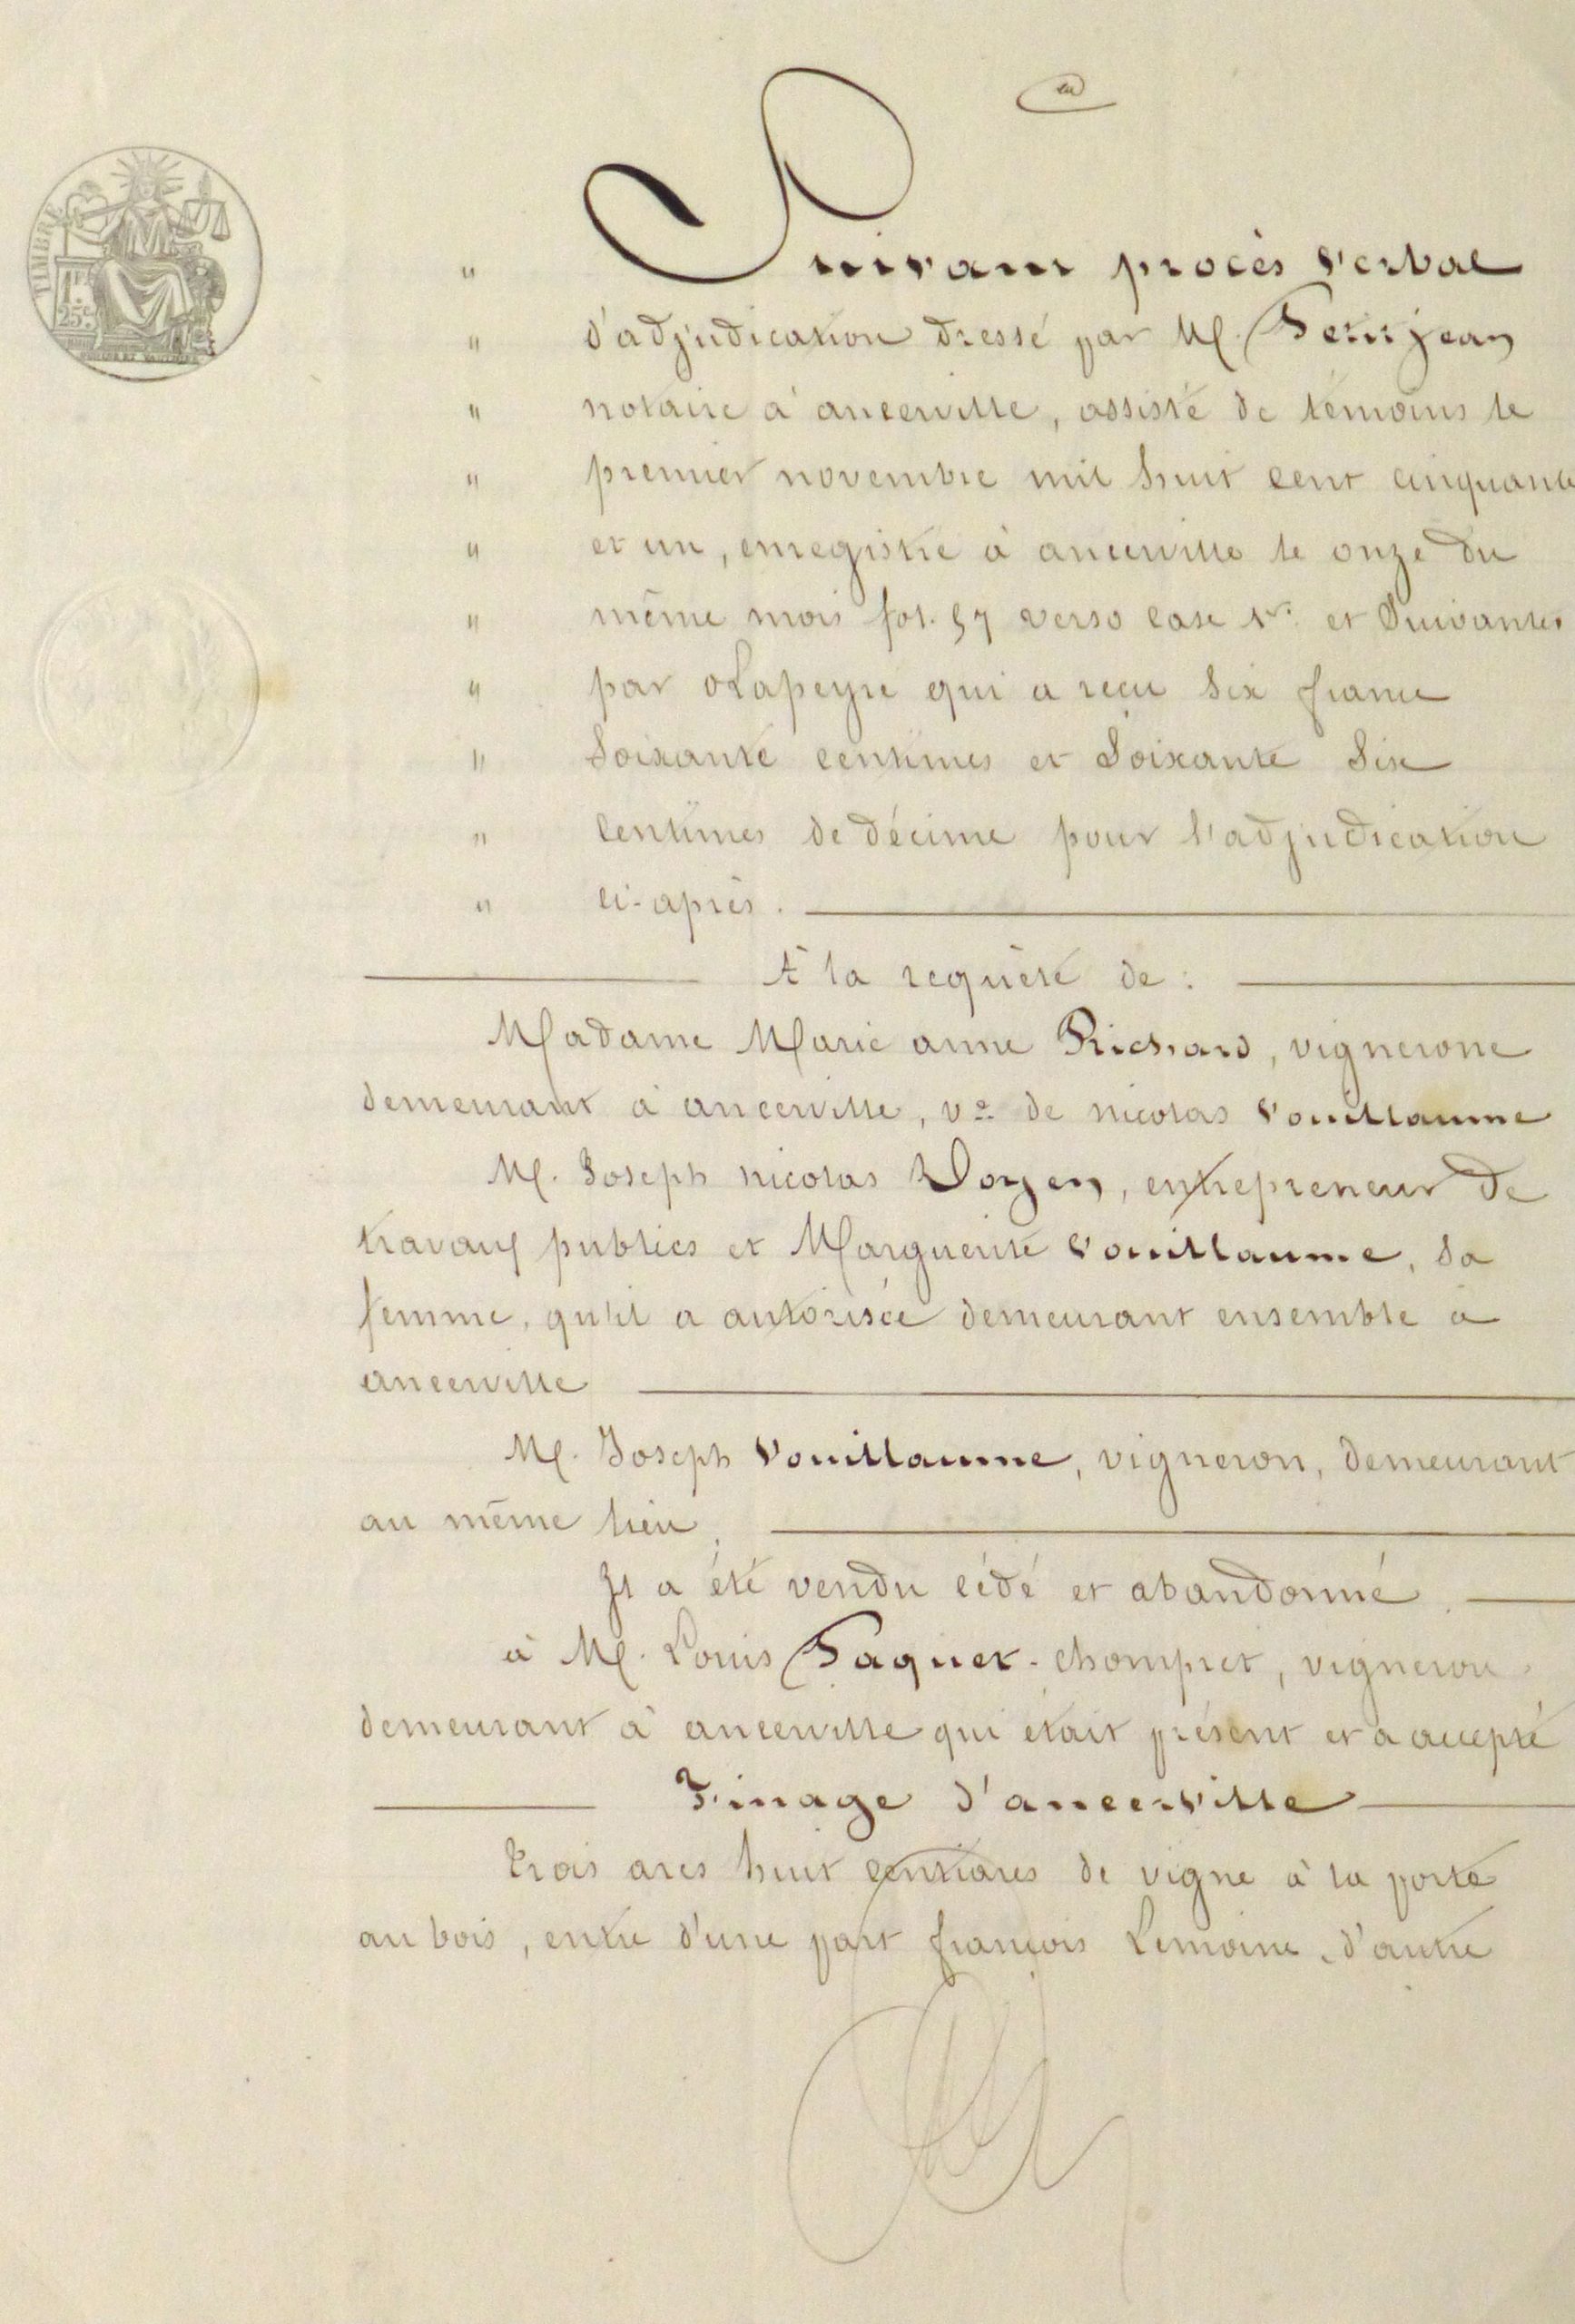 TIMBRE
1F.
25c.
en
" Suivant procès verbal
" d'adjudication dressé par M. Petitjean
" notaire à ancerville, assisté de témoins le
" premier novembre mil huit cent cinquante
" et un, enregistré à ancerville le onze du
" même mois fol. 57 verso case 1re. et Suivantes
" par Lapeyre qui a reçu six francs
" Soixante centimes et Soixante Six
" Centimes de décime pour l'adjudication
" ci-après.
À la requête de :
Madame Marie anne Richard, vignerone
demeurant à ancerville, ve. de nicolas Vouillaume
M. Joseph nicolas Doyen, entrepreneur de
travaux publics et Marguerite Vouillaume, sa
femme, qu'il a autorisée demeurant ensemble à
ancerville
M. Joseph Vouillaume, vigneron, demeurant
au même lieu.
Il a été vendu cédé et abandonné.
à M. Louis Paquet-chompret, vigneron
demeurant à ancerville qui était présent et a accepté
Finage d'ancerville
trois ares huit centiares de vigne à la porte
au bois, entre d'une part françois Lemoine, d'autre